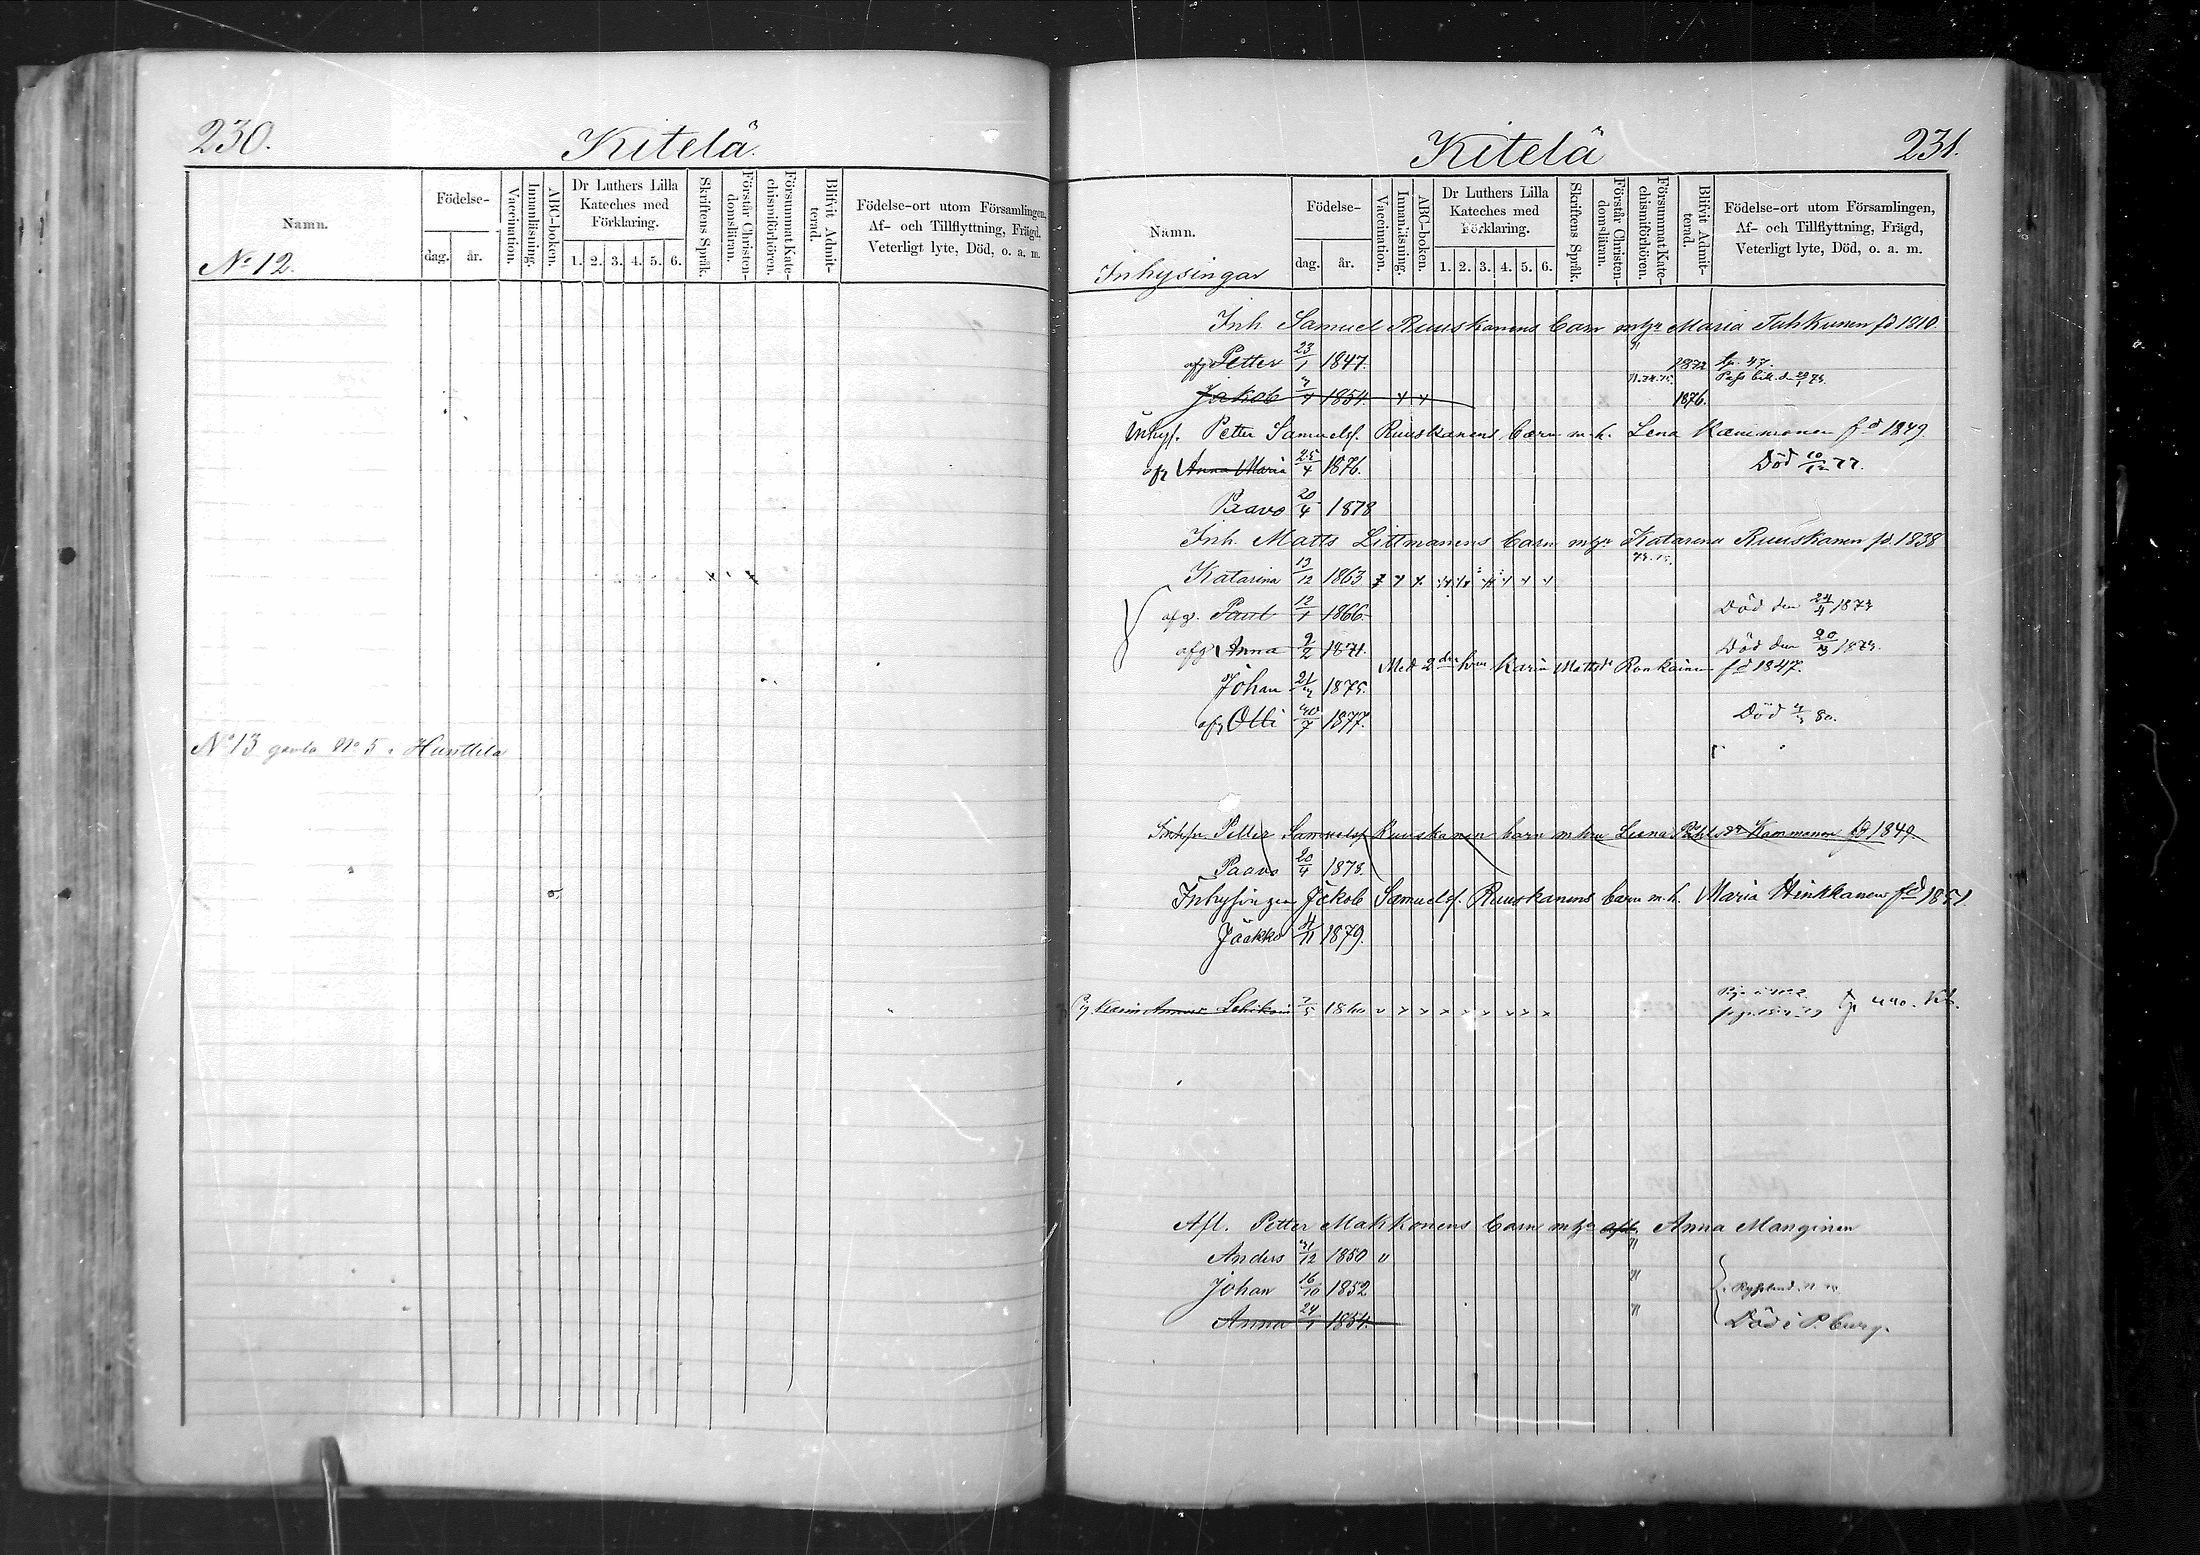 230.
Kitelä.
Namn.
Födelse-
dag.
år.
Vaccination.
Innanläsning.
ABC-boken.
Dr Luthers Lilla
Kateches med
Förklaring.
1. 2. 3. 4. 5. 6.
Skriftens Språk.
Förstår Christen-
domsläran.
Försummat Kate-
chismiförhören.
Blifvit Admit-
terad.
Födelse-ort utom Församlingen,
Af- och Tillflyttning, Frägd,
Veterligt lyte, Död, o. a. m.
No 12.
No 13 gamla No 5 Hunttila
Kitelä
231.
Namn.
Inhysingar
Födelse-
dag.
år.
Vaccination.
Innanläsning.
ABC-boken.
Dr Luthers Lilla
Kateches med
Förklaring.
1. 2. 3. 4. 5. 6.
Skriftens Språk.
Förstår Christen-
domsläran.
Försummat Kate-
chismiförhören.
Blifvit Admit-
terad.
Födelse-ort utom Församlingen,
Af- och Tillflyttning, Frägd,
Veterligt lyte, Död, o. a. m.
Inh Samuel Ruuskanens barn m hr Maria Tuhkunen fd 1810
Petter 23/1 1847. 1872
Jakob 7/4 1854. 1876.
Inhys. Petter Samuelss. Ruuskanens barn m. h. Lena Kämmönen fd 1849.
Anna Maria 25/4 1876. Död 10/12 77.
Paavo 20/4 1878
Inh. Matts Littmanens barn m hr Katarina Ruuskanen fd. 1838
Katarina 13/12 1863
afg. Paul 12/1 1866. Död den 24/4 1874
afg. Anna 9/2 1871. Död den 20/3 1874.
Med 2dra hrun Karin Mattsdr Ronkainen fd 1847.
Johan 1875.
afg Olli 30/7 1877. Död 80.
Inhys. Petter Samuelss Ruuskanen barn m hru Leena Kämmönen fd 1849.
Paavo 20/4 1878.
Inhysingen Jakob Samuelss. Ruuskanens barn m. h. Maria Hinkkanen fd 1851.
Jaakko 1879.
1860
Afl. Petter Makkonens barn m hr afl. Anna Manginen
Anders 1850
Johan 16/10 1852
Anna 24/1 1854. Död i P. burg.